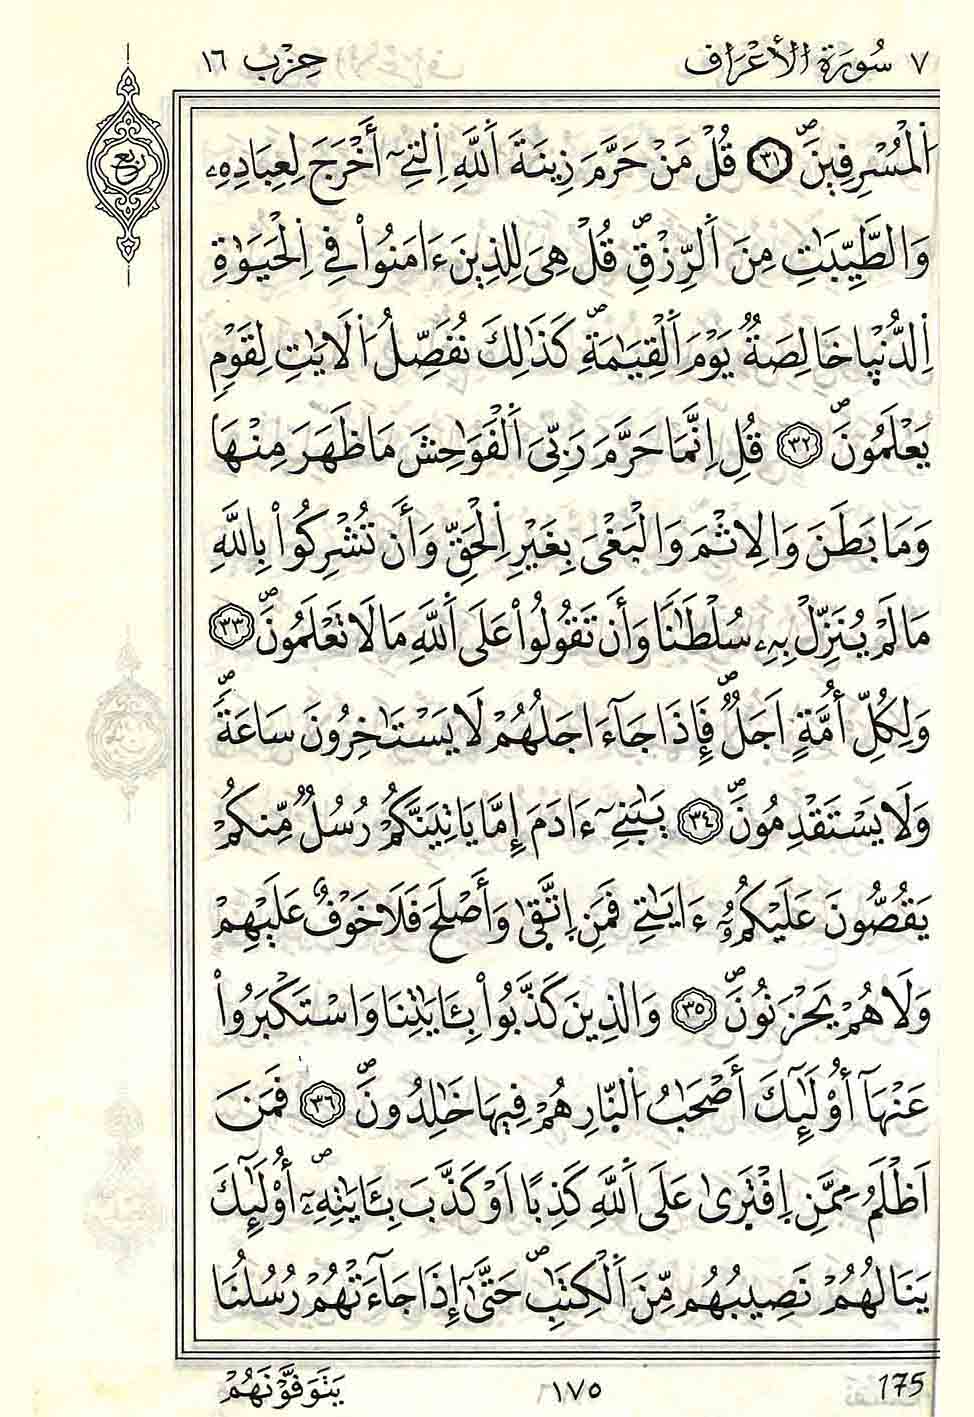 ٧ سُورَةُ الأَعْرَافِ حِزْب ١٦
رُبع
اَ۬لْمُسْرِفِينَۖ ٣١ قُلْ مَنْ حَرَّمَ زِينَةَ اَ۬للَّهِ اِ۬لتِےٓ أَخْرَجَ لِعِبَادِهِۦ
وَالطَّيِّبَٰتِ مِنَ اَ۬لرِّزْقِۖ قُلْ هِيَ لِلذِينَ ءَامَنُواْ فِے اِ۬لْحَيَوٰةِ
اِ۬لدُّنْيَا خَالِصَةٞ يَوْمَ اَ۬لْقِيَٰمَةِۖ كَذَٰلِكَ نُفَصِّلُ اُ۬لَايَٰتِ لِقَوْمٖ
يَعْلَمُونَۖ ٣٢ قُلِ اِنَّمَا حَرَّمَ رَبِّيَ اَ۬لْفَوَٰحِشَ مَا ظَهَرَ مِنْهَا
وَمَا بَطَنَ وَالِاثْمَ وَالْبَغْيَ بِغَيْرِ اِ۬لْحَقِّ وَأَن تُشْرِكُواْ بِاللَّهِ
مَا لَمْ يُنَزِّلْ بِهِۦ سُلْطَٰناٗ وَأَن تَقُولُواْ عَلَي اَ۬للَّهِ مَا لَا تَعْلَمُونَۖ ٣٣
وَلِكُلِّ أُمَّةٍ اَجَلٞۖ فَإِذَا جَآءَ اجَلُهُمْ لَا يَسْتَٰخِرُونَ سَاعَةٗۖ
وَلَا يَسْتَقْدِمُونَۖ ٣٤ يَٰبَنِےٓ ءَادَمَ إِمَّا يَاتِيَنَّكُمْ رُسُلٞ مِّنكُمْ
يَقُصُّونَ عَلَيْكُمُۥٓ ءَايَٰتِے فَمَنِ اِ۪تَّقۭيٰ وَأَصْلَحَ فَلَا خَوْفٌ عَلَيْهِمْ
وَلَا هُمْ يَحْزَنُونَۖ ٣٥ وَالذِينَ كَذَّبُواْ بِـَٔايَٰتِنَا وَاسْتَكْبَرُواْ
عَنْهَآ أُوْلَٰٓئِكَ أَصْحَٰبُ اُ۬لنّ۪ارِ هُمْ فِيهَا خَٰلِدُونَۖ ٣٦ فَمَنَ
اَظْلَمُ مِمَّنِ اِ۪فْتَر۪يٰ عَلَي اَ۬للَّهِ كَذِباً اَوْ كَذَّبَ بِـَٔايَٰتِهِۦٓۖ أُوْلَٰٓئِكَ
يَنَالُهُمْ نَصِيبُهُم مِّنَ اَ۬لْكِتَٰبِۖ حَتَّيٰٓ إِذَا جَآءَتْهُمْ رُسُلُنَا
175 ١٧٥ يَتَوَفَّوْنَهُمْ